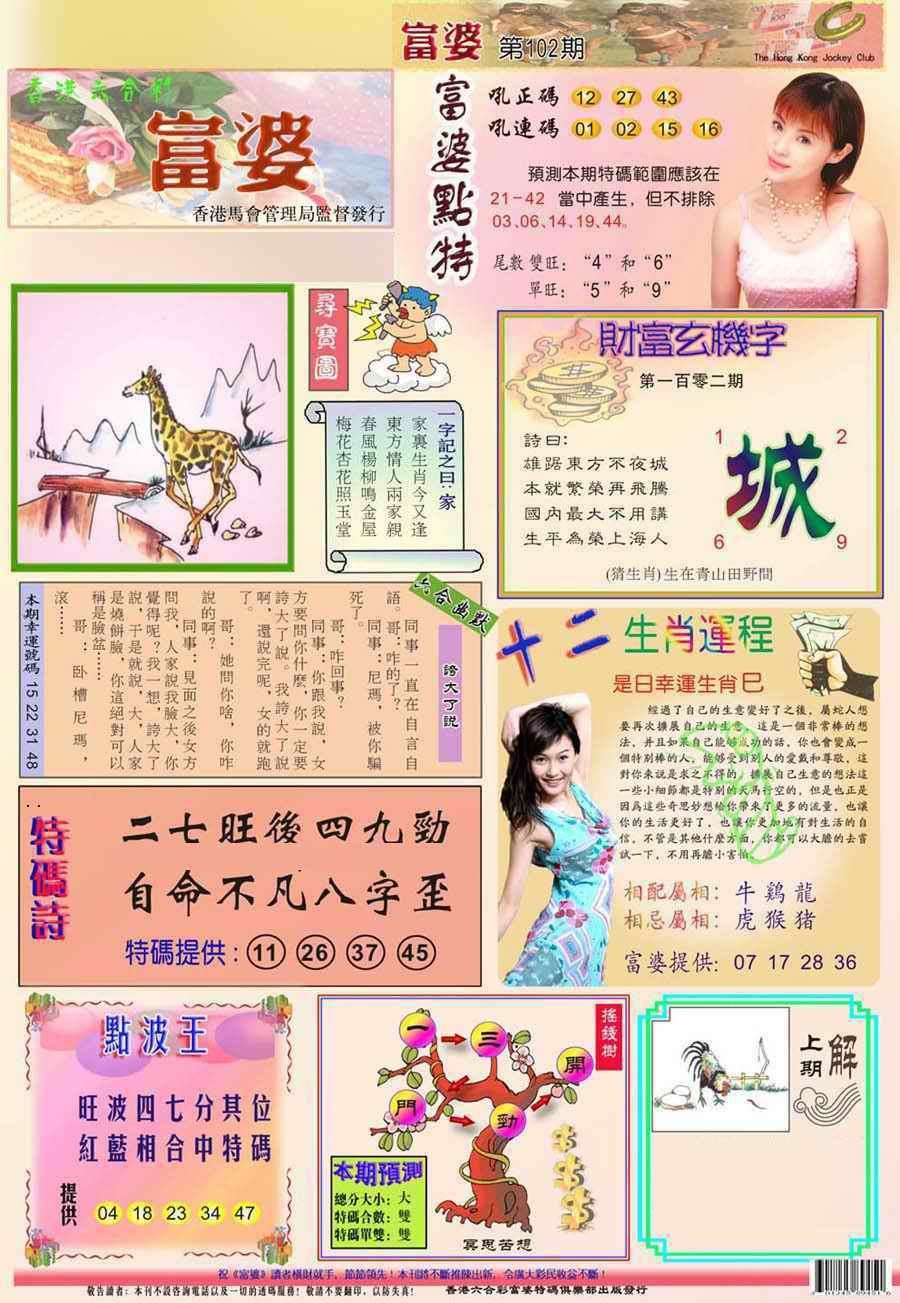 富婆 第102期
The Hong Kong Jockey Club
香港六合彩
富婆
香港馬會管理局監督發行
富婆點特
吼正碼 12 27 43
吼連碼 01 02 15 16
預測本期特碼範圍應該在
21-42 當中產生，但不排除
03、06、14、19、44。
尾數雙旺：“4”和“6”
單旺：“5”和“9”
尋寶圖
一字記之曰：家
家裏生肖今又逢
東方情人兩家親
春風楊柳鳴金屋
梅花杏花照玉堂
財富玄機字
第一百零二期
詩曰：
雄踞東方不夜城
本就繁榮再飛騰
國內最大不用講
生平為榮上海人
1 2
城
6 9
(猜生肖)生在青山田野間
六合幽默
誇大了説
同事一直在自言自
語。哥：咋的了？
同事：尼瑪，被你騙
死了。
哥：咋回事？
同事：你跟我説，女
方要問你什麽，你一定要
誇大了説。我誇大了説
啊，還説完呢，女的就跑
了。
哥：她問你啥，你咋
説的啊？
同事：見面之後女方
問我，人家説我臉大，你
覺得呢？我一想，誇大了
説，于是就説，大，人家
是燒餅臉，你這絕對可以
稱是臉盆……
哥：卧槽尼瑪，
滾……
本期幸運號碼 15 22 31 48
十二生肖運程
是日幸運生肖巳
經過了自己的生意變好了之後，屬蛇人想
要再次擴展自己的生意，這是一個非常棒的想
法，并且如果自己能够成功的話，你也會變成一
個特别棒的人，能够受到别人的愛戴和尊敬，這
對你來説是求之不得的，擴展自己生意的想法這
一些小細節都是特别的天馬行空的，但是也正是
因爲這些奇思妙想給你帶來了更多的流量，也讓
你的生活更好了，也讓你更加地有對生活的自
信，不管是其他什麽方面，你都可以大膽的去嘗
試一下，不用再膽小害怕。
相配屬相：牛 鷄 龍
相忌屬相：虎 猴 猪
富婆提供：07 17 28 36
特碼詩
二七旺後四九勁
自命不凡八字歪
特碼提供：11 26 37 45
點波王
旺波四七分其位
紅藍相合中特碼
提供 04 18 23 34 47
搖錢樹
一 三 開
門 勁
本期預測
總分大小：大
特碼合數：雙
特碼單雙：雙
冥思苦想
上期解
祝《富婆》讀者橫財就手，節節領先！本刊將不斷推陳出新，令廣大彩民收益不斷！
敬告讀者：本刊不設咨詢電話以及一切的透碼服務！敬請不要翻印，以防失真！ 香港六合彩富婆特碼俱樂部出版發行